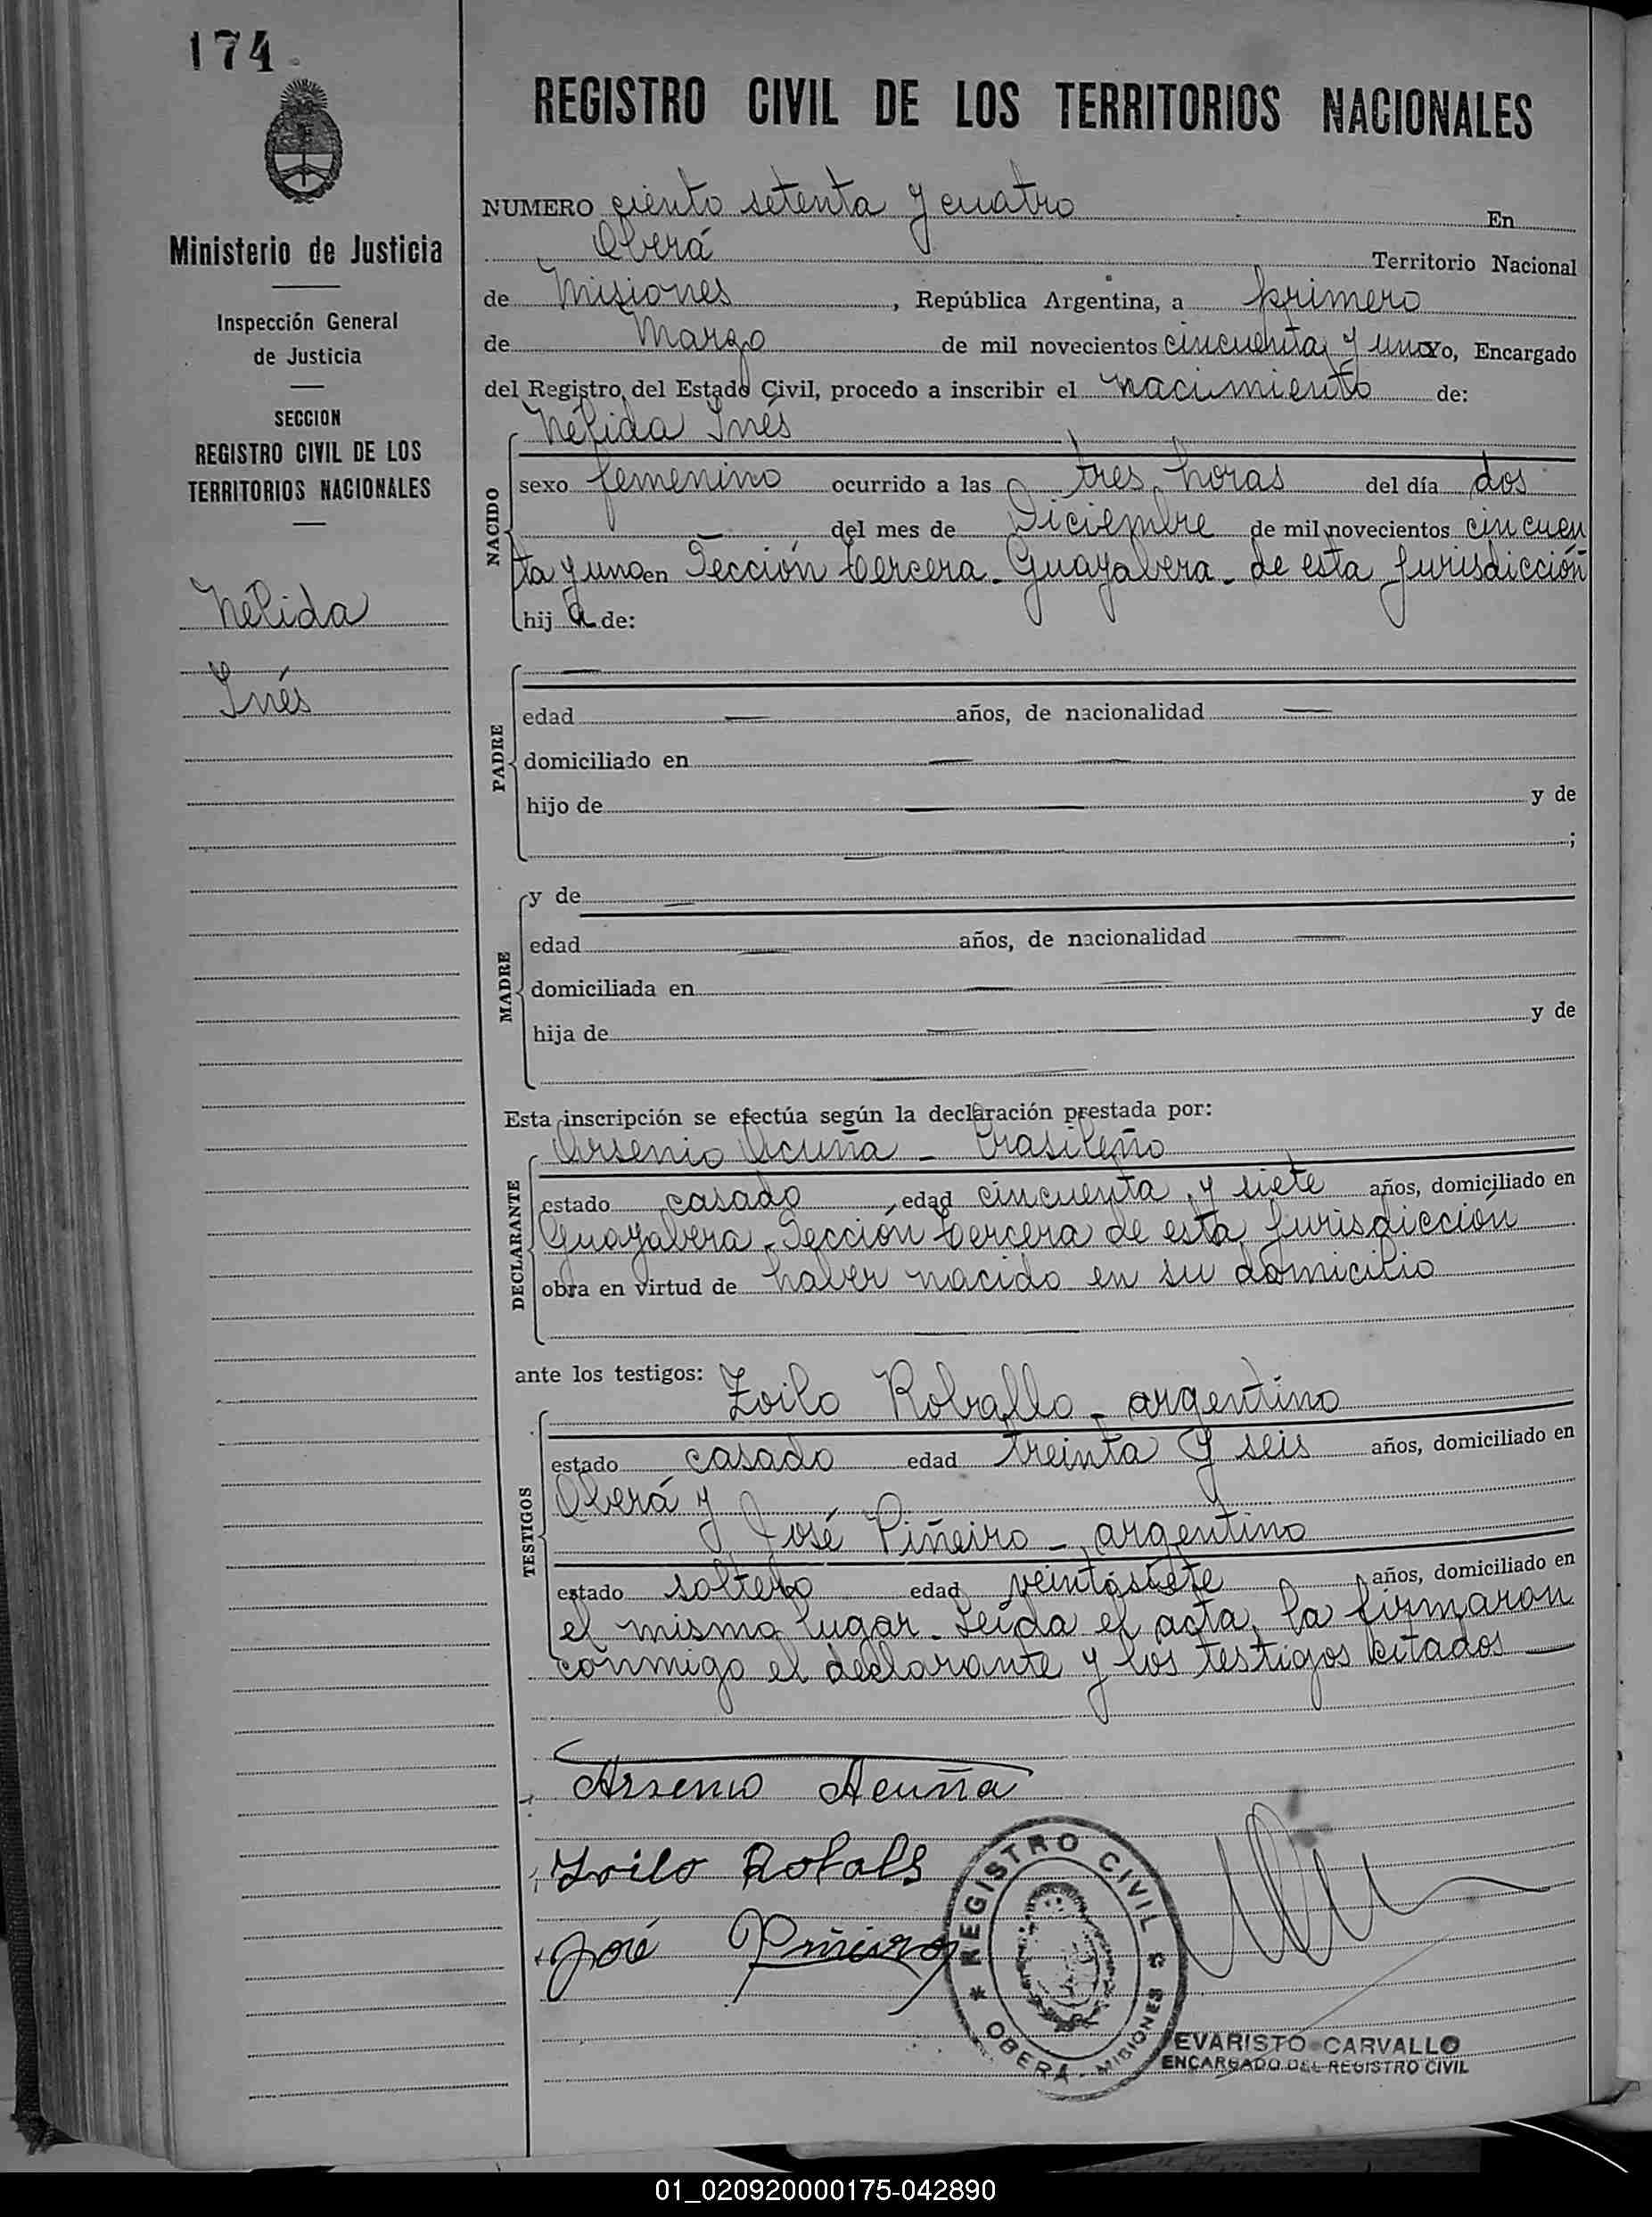 174
REGISTRO CIVIL DE LOS TERRITORIOS NACIONALES
Ministerio de Justicia
Inspección General
de Justicia
SECCION
REGISTRO CIVIL DE LOS
TERRITORIOS NACIONALES
Nélida
Inés
NUMERO ciento setenta y cuatro En
Oberá Territorio Nacional
de Misiones, República Argentina, a primero
de Marzo de mil novecientos cincuenta y uno Yo, Encargado
del Registro del Estado Civil, procedo a inscribir el nacimiento de:
NACIDO
Nélida Inés
sexo femenino ocurrido a las tres horas del día dos
del mes de Diciembre de mil novecientos cincuen
ta y uno en Sección tercera - Guayabera - de esta jurisdicción
hij a de:
PADRE
edad años, de nacionalidad
domiciliado en
hijo de y de
;
MADRE
y de
edad años, de nacionalidad
domiciliada en
hija de y de
Esta inscripción se efectúa según la declaración prestada por:
DECLARANTE
Arsenio Acuña - brasileño
estado casado edad cincuenta y siete años, domiciliado en
Guayabera - Sección tercera de esta jurisdicción
obra en virtud de haber nacido en su domicilio
ante los testigos:
TESTIGOS
Zoilo Roballo - argentino
estado casado edad treinta y seis años, domiciliado en
Oberá y
José Piñeiro - argentino
estado soltero edad veintisiete años, domiciliado en
el mismo lugar. Leída el acta, la firmaron
conmigo el declarante y los testigos citados
Arsenio Acuña
Zoilo
José Piñeiro
REGISTRO CIVIL
OBERA - MISIONES
EVARISTO CARVALLO
ENCARGADO DEL REGISTRO CIVIL
01_020920000175-042890